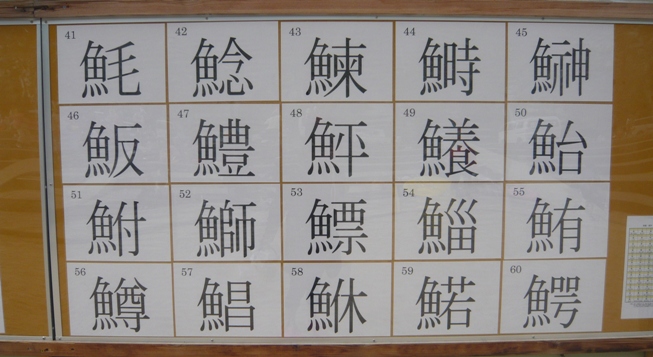 41 魹
42 鯰
43 鰊
44 鰣
45 鰰
46 魬
47 鱧
48 鮃
49 鱶
50 鮐
51 鮒
52 鰤
53 鰾
54 鯔
55 鮪
56 鱒
57 鯧
58 鮴
59 鰙
60 鰐